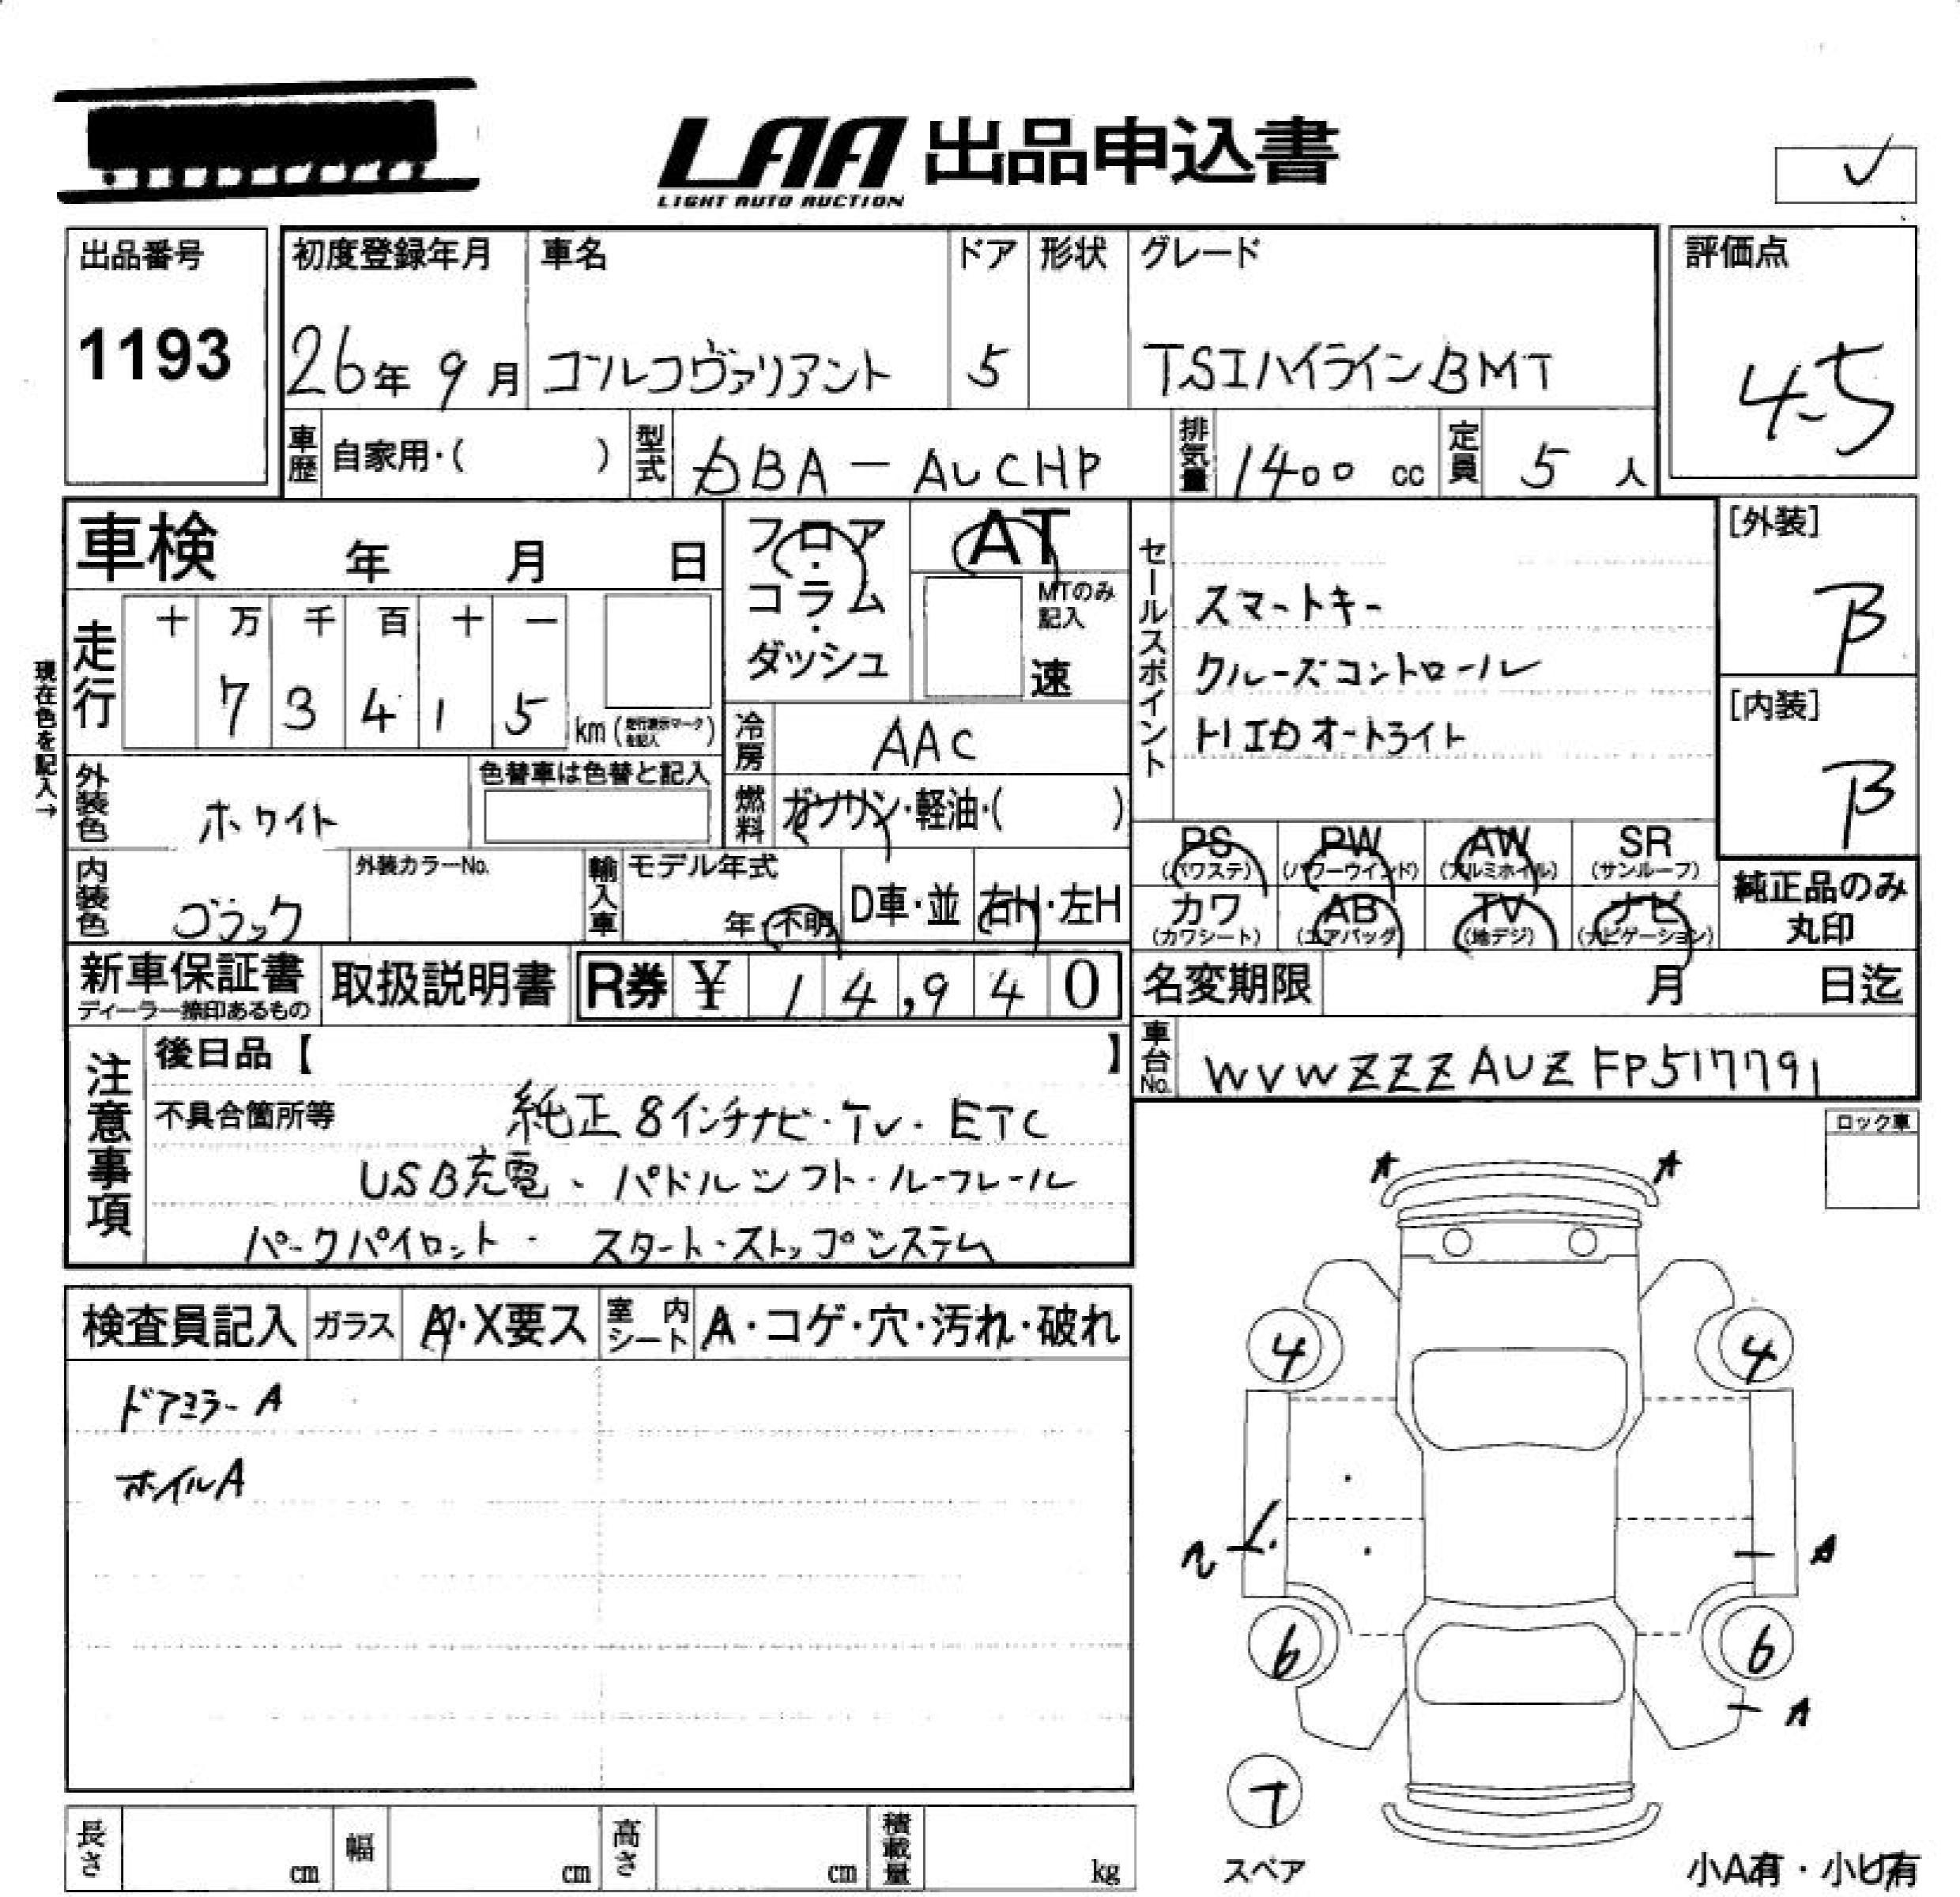 LAA 出品申込書
LIGHT AUTO AUCTION
出品番号 初度登録年月 車名 ドア 形状 グレード 評価点
1193 26年 9月 ゴルフヴァリアント 5 TSIハイラインBMT 4.5
車歴 自家用・( ) 型式 DBA-AUCHP 排気量 1400 cc 定員 5 人
車検 年 月 日
フロア・コラム・ダッシュ
AT
MTのみ記入
速
セールスポイント
スマートキー
クルーズコントロール
HIDオートライト
[外装]
B
[内装]
B
現在色を記入→
走行 十 万 千 百 十 一
7 3 4 1 5 km (走行表示マークを記入)
冷房 AAC
外装色 ホワイト 色替車は色替と記入
燃料 ガソリン・軽油・( )
内装色 ブラック 外装カラーNo. 輸入車 モデル年式 年・不明 D車・並 右H・左H
PS (パワステ) PW (パワーウインド) AW (アルミホイル) SR (サンルーフ)
カワ (カワシート) AB (エアバッグ) TV (地デジ) ナビ (ナビゲーション)
純正品のみ
丸印
新車保証書 取扱説明書 R券 ¥ 14,940
ディーラー捺印あるもの
名変期限 月 日迄
車台No. WVWZZZAUZFP517791
注意事項
後日品【 】
不具合箇所等 純正8インチナビ・TV・ETC
USB充電・パドルシフト・ルーフレール
パークパイロット・ スタート・ストップシステム
ロック車
検査員記入 ガラス A・X要ス 室内シート A・コゲ・穴・汚れ・破れ
ドアミラーA
ホイルA
A A
4 4
A
6 6
A
スペア
小A有・小U有
長さ cm 幅 cm 高さ cm 積載量 kg